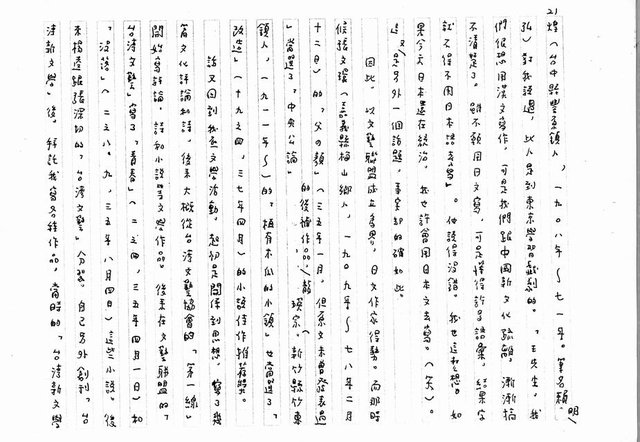 21
煌(台中縣豐原鎮人,一九〇八年~七一年。筆名賴明
弘)對我說過,此人是到東京學習戲劇的。「王先生,我
們很想用漢文寫作。可是我們跟中國新文化疏隔,漸漸搞
不清楚了。雖不願用日文寫,可是懂得許多語彙,結果字
就不得不用日本語去寫」。他說得沒錯。我也這麼想。如
果今天日本還在統治,我也許會用日本文去寫。(笑)。
這又是另外一個話題,事實卻的確如此。
因此,以文藝聯盟成立為界,日文作家得勢。而那時
候張文環(嘉義縣梅山鄉人,一九〇九年~七八年二月
十二日)的「父の顏」(三五年一月。但原文未曾發表過
」當選了「中央公論」的後補作品;龍瑛宗(新竹縣竹東
鎮人,一九一一年~)的「植有木瓜的小鎮」也當選了「
改造」(十九之四,三七年四月)的小說佳作推薦獎。
話又回到我底文學活動。起初是關係到思想,寫了幾
篇文化評論和詩,後來大概從台灣文藝協會的「第一線」
開始寫評論、詩和小說等文學作品。後來在文藝聯盟的「
台灣文藝」寫了「青春」(二之四,三五年四月一日)和
「沒落」(二之八、九,三五年八月四日)這些小說。後
來楊逵跟張深切的「台灣文藝」分裂,自己另外創刊「台
灣新文學」後,拜託我寫各種作品,當時的「台灣新文學